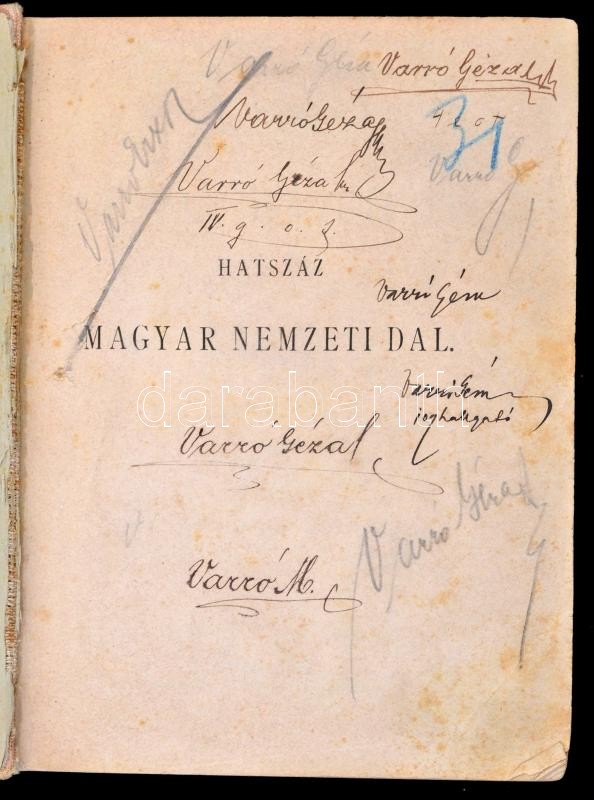 Varró Géza
Varró Géza
Varró Géza
Varró G
Varró Géza
IV. g. o. t.
HATSZÁZ
Varró Géza
MAGYAR NEMZETI DAL.
darabanth
Varró Géza
joghallgató
Varró Géza
Varró Géza
Varró M.